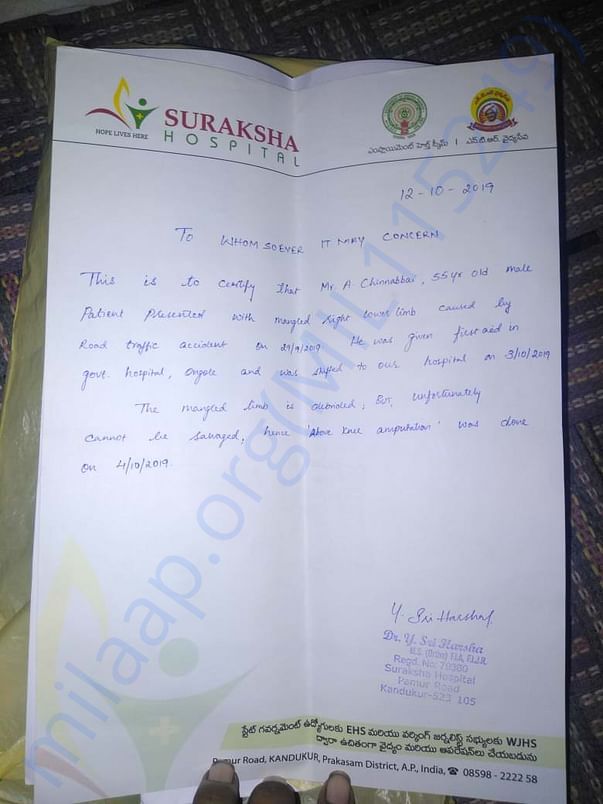 HOPE LIVES HERE
SURAKSHA
HOSPITAL
ఎంప్లాయిమెంట్ హెల్త్ స్కీమ్ | ఎన్.టి.ఆర్. వైద్యసేవ
12-10-2019
To WHOM SOEVER IT MAY CONCERN
This is to certify that Mr A. Chinnabbai, 55 yr old male
Patient Presented with mangled right lower limb caused by
Road traffic accident on 29/9/2019. He was given first aid in
govt. hospital, ongole and was shifted to our hospital on 3/10/2019
The mangled limb is debrided, But unfortunately
cannot be salvaged, hence 'Above knee amputation' was done
on 4/10/2019.
Y. Sri Harsha
Dr. Y. Sri Harsha
M.S. (Ortho)
Regd. No: 79380
Suraksha Hospital
Pamur Road
Kandukur-523 105
స్టేట్ గవర్నమెంట్ ఉద్యోగులకు EHS మరియు వర్కింగ్ జర్నలిస్ట్ సభ్యులకు WJHS
ద్వారా ఉచితంగా వైద్యం మరియు ఆపరేషన్లు చేయబడును
Pamur Road, KANDUKUR, Prakasam District, A.P., India, ☎ 08598 - 2222 58
milaap.org(MIL115249)